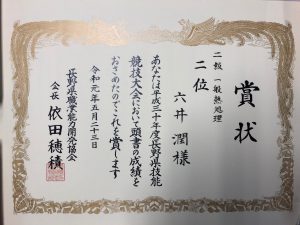 賞状
二級 一般熱処理
二位
六井 潤 様
あなたは平成三十年度長野県技能
競技大会において頭書の成績を
おさめたのでこれを賞します
令和元年五月二十三日
長野県職業能力開発協会
会長 依田穂積